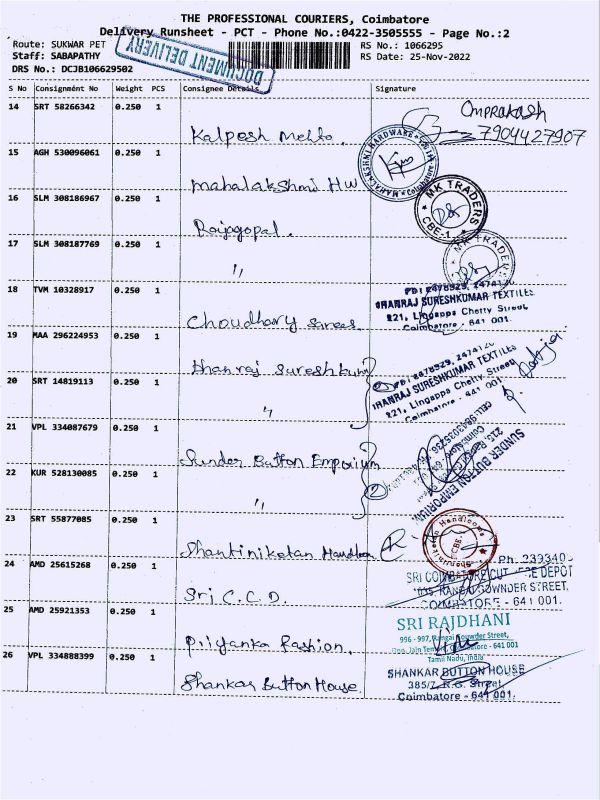 THE PROFESSIONAL COURIERS, Coimbatore
Delivery Runsheet - PCT - Phone No.:0422-3505555 - Page No.:2
Route: SUKWAR PET
RS No.: 1066295
Staff: SABAPATHY
RS Date: 25-Nov-2022
DRS No.: DCJB106629502
DOCUMENT DELIVERY
S No Consignment No Weight PCS Consignee Details Signature
14 SRT 58266342 0.250 1
Omprakash
7904427907
Kalpesh Mehta.
15 AGH 530096061 0.250 1
MAHALAKSHMI HARDWARE
Coimbatore
Mahalakshmi HW
16 SLM 308186967 0.250 1
MK TRADERS
CBE-1
Rajagopal.
17 SLM 308187769 0.250 1
MK TRADERS
"
18 TVM 10328917 0.250 1
DHANRAJ SURESHKUMAR TEXTILES
221, Lingappa Chetty Street,
Coimbatore - 641 001.
Choudhary Sarees
19 MAA 296224953 0.250 1
Dhanraj Sureshkumar
20 SRT 14819113 0.250 1
DHANRAJ SURESHKUMAR TEXTILES
221, Lingappa Chetty Street,
Coimbatore - 641 001.
"
21 VPL 334087679 0.250 1
Sunder Button Emporium
SUNDER BUTTON EMPORIUM
22 KUR 528130085 0.250 1
"
2
23 SRT 55877085 0.250 1
Shantiniketan Handloom
24 AMD 25615268 0.250 1
SRI COIMBATORE CUT PIECE DEPOT
COIMBATORE - 641 001.
Sri C.C.D
25 AMD 25921353 0.250 1
SRI RAJDHANI
996 - 997, Rangai Gowder Street,
Opp. Jain Temple, Coimbatore - 641 001
Tamil Nadu, India
Priyanka Fashion.
26 VPL 334888399 0.250 1
SHANKAR BUTTON HOUSE
385/7, R.G. Street,
Coimbatore - 641 001.
Shankar Button House.